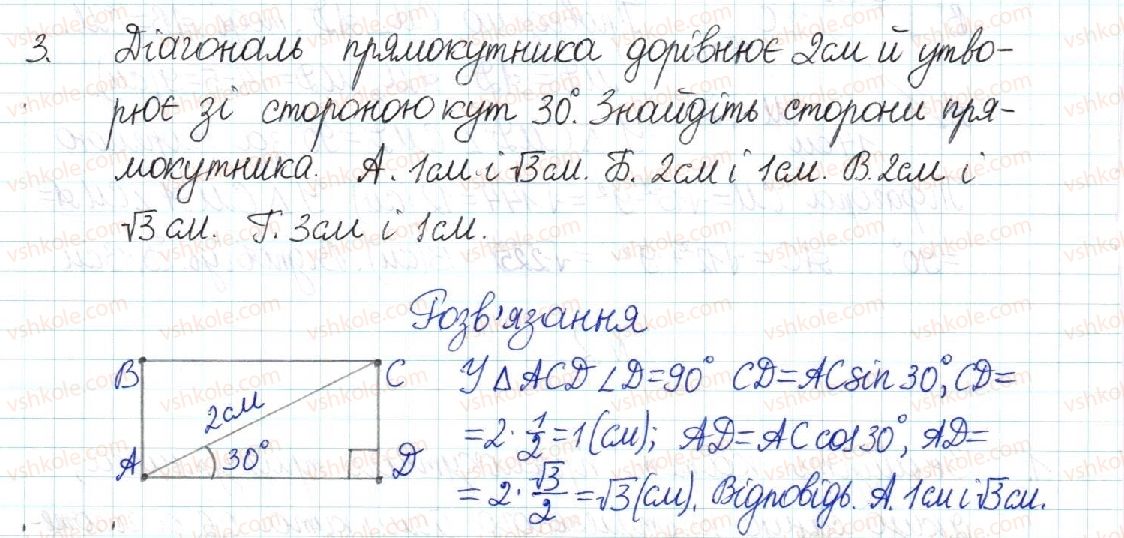 3. Діагональ прямокутника дорівнює 2см й утво-
рює зі стороною кут 30°. Знайдіть сторони пря-
мокутника. А. 1см і √3 см. Б. 2см і 1см. В. 2см і
√3 см. Г. 3см і 1см.
Розв'язання
B C
2см
A 30° D
У △ACD ∠D=90° CD=ACsin30°, CD=
=2·1/2=1(см); AD=ACcos30°, AD=
=2·√3/2=√3(см). Відповідь. А. 1см і √3см.
vshkole.com